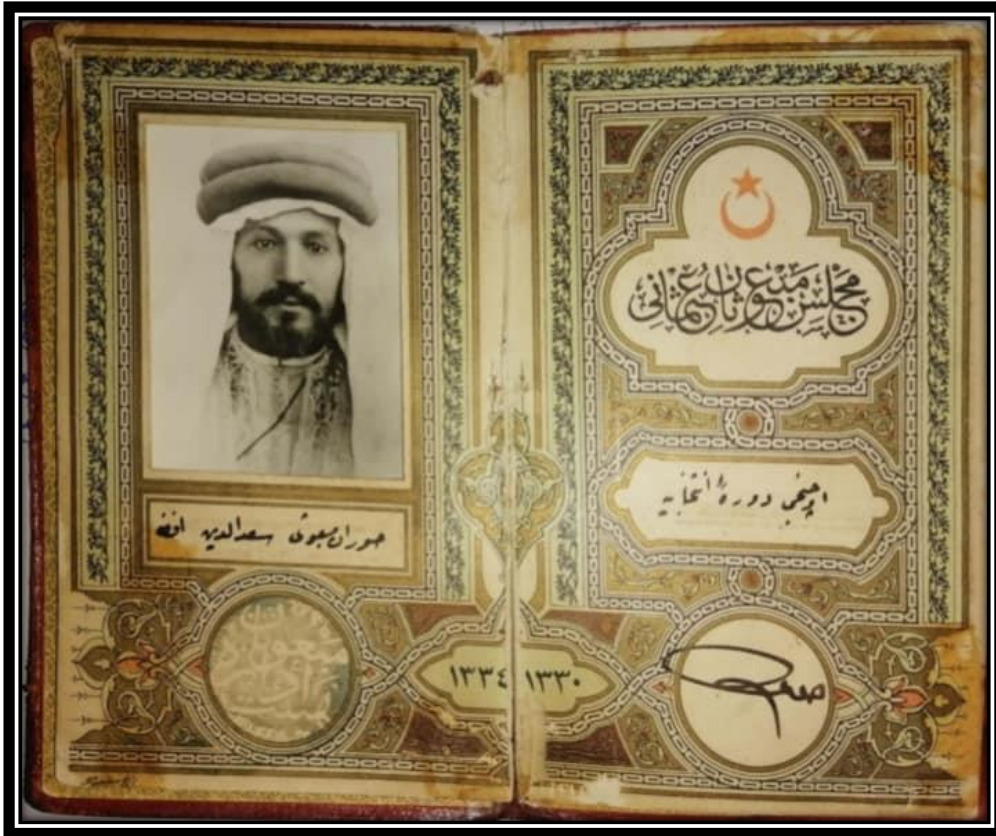 مجلس مبعوثان عثمانی
اوچنجی دورهٔ انتخابیه
حوران مبعوثی سعدالدين افندی
١٣٣٤ ١٣٣٠